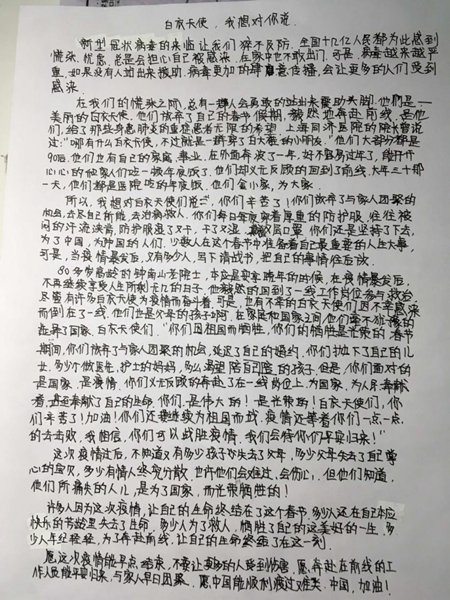 白衣天使,我想对你说
新型冠状病毒的来临让我们猝不及防。全国十几亿人民都为此感到
慌张、忧虑,总是会担心自己被感染,在家中也不敢出门。可是,病毒越来越严
重,如果没有人站出来援助,病毒更加的肆意传播,会让更多的人们受到
感染。
在我们的慌张之际,总有一群人会勇敢的站出来带助头脚。他們是一
美丽的白衣天使,他们放弃了自己的春节假期,毅然地奔赴前线,是他
们,给了那些身患肺炎的重症患者无限的希望。上海同济医院的院长曾说
过:"哪有什么白衣天使,不过就是一群穿了白大褂的小朋友。"他们大部分都是
90后,他们也有自己的家庭、事业,在外面奔波了一年,好不容易过年了,能开开
心心的他家人们吃一极年夜饭了,他们却义无反顾的回到了前线,大年三十那
一天,他们都是医院吃的年夜饭,他们舍小家,为大家。
所以,我想对白衣天使们说:"你们辛苦了!你们放弃了与家人团聚的
机会,去尽自己所能,去治病救人,你们每日每夜穿着厚重的防护服,往往被
闷的汗流浃背,防护服湿了又干,干了又湿,口罩,你们还是坚持了下去,
为了中国,为中国的人们。少数人在这个春节中准备着自己最重要的人生大事,
可是,当疫情暴发后,又有多少人,写下请战书,把自己的事情往后放。
80多岁高龄的钟南山老院士,本应是安享晚年的时候,在疫情暴发后,
不再继续享受人生所剩无几的日子,他毅然的回到了一线工作岗位参与救治。
尽管有许多白衣天使为疫情而奋斗着,可是,也有不幸的白衣天使们因不幸感染
而倒在了一线,他们也是父母的孩子啊,在家庭和国家之间他们毫不犹豫的
选择了国家。白衣天使们:"你们因祖国而牺牲,你们的牺牲是光荣的,春节
期间,你们放弃了与家人团聚的机会,延迟了自己的婚约,你们抛下了自己的儿
女,多少个做医生、护士的妈妈,多么渴望陪自己陪的孩子,但是,你们面对的
是国家,是疫情,你们义无反顾的奔赴了在一线岗位上,为国家,为人民奉献
着,甚至奉献了自己的生命,你们,是伟大的!是光荣的!白衣天使们,你
们辛苦了!加油!你们还要继续为祖国而战,疫情还等着你们一点一点
的去击败,我相信,你们可以战胜疫情,我们会待你们平安归来!"
这次疫情过后,不知道又有多少孩子也失去了父母,多少父母失去了自己
心的宝贝,多少有情人终究分散,也许他们会难过、会伤心,但他们知道,
使们所痛失的人儿,是为了国家,而光荣牺牲的!
许多人因为这次疫情,让自己的生命终结在了这个春节,多少人还在自己本应
快乐的节日里失去了生命,多少人为了救人,牺牲了自己的这美好的一生,多
少人年纪轻轻,为了奔赴前线,让自己的生命终结了在这一刻。
愿这次疫情能早点结束,不要让更多的人受到伤害,愿奔赴在前线的工
作人员能平安归来,与家人早日团聚,愿中国能顺利渡过难关,中国,加油!